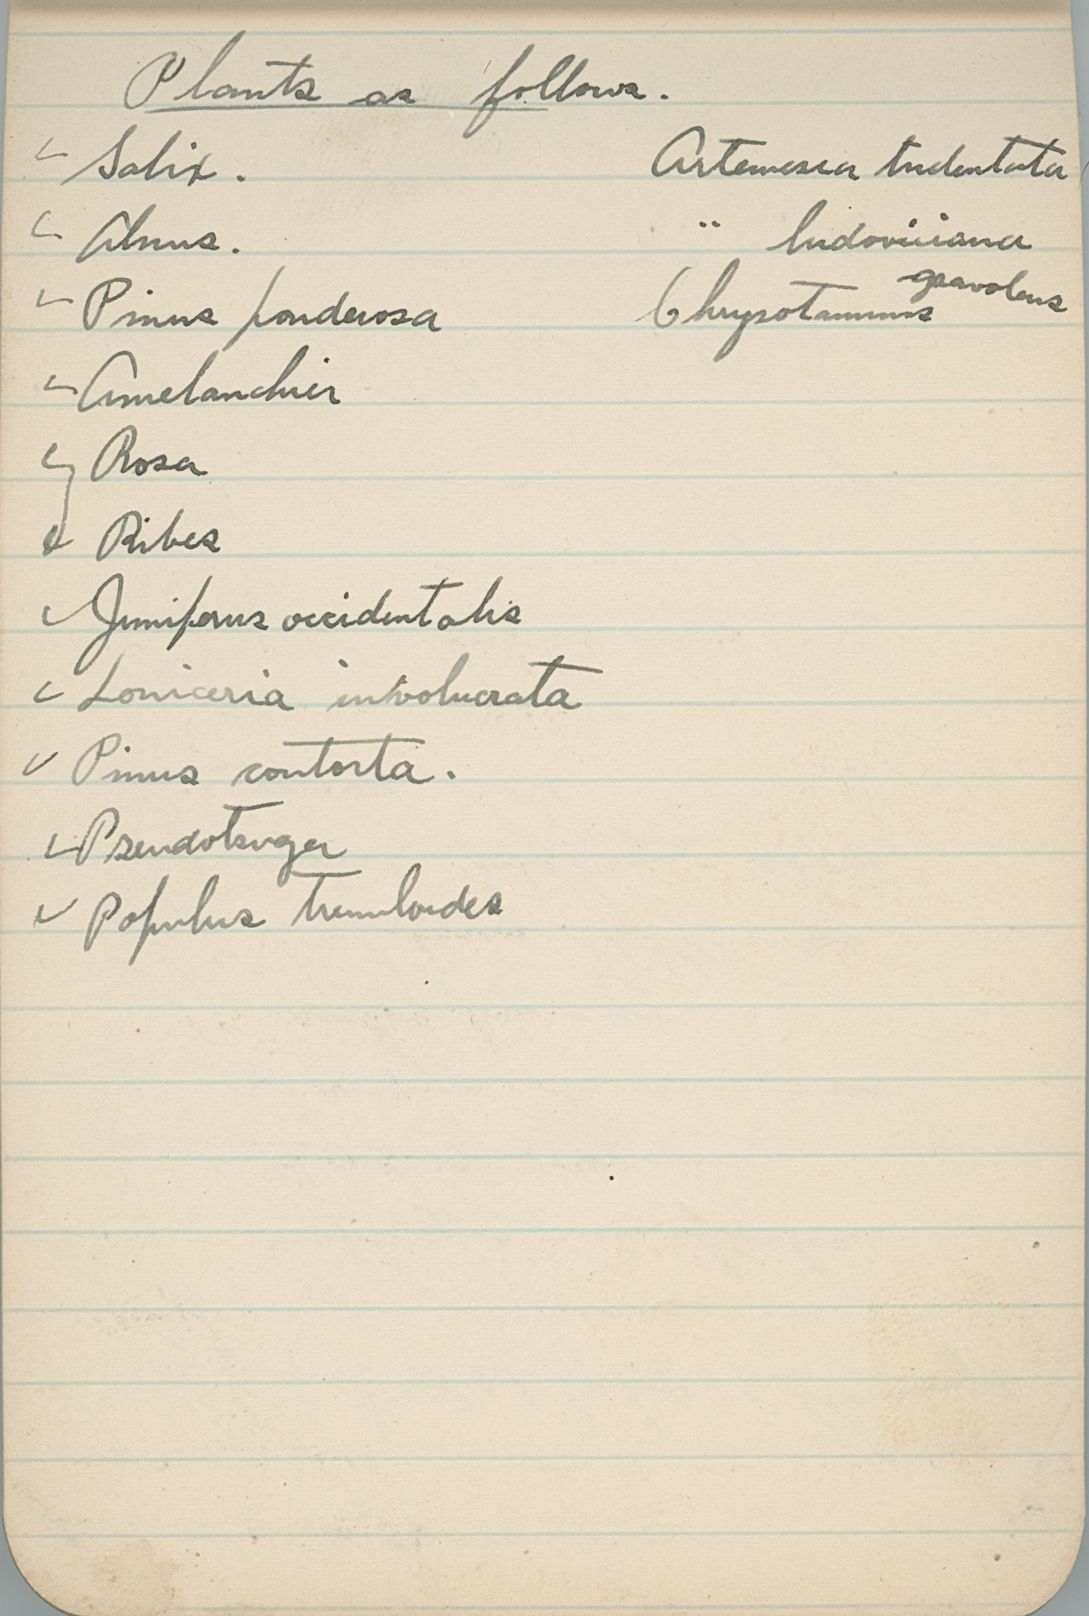 Plants as follows.
✓ Salix.
✓ Alnus.
✓ Pinus ponderosa
✓ Amelanchier
✓ Rosa
✓ Ribes
✓ Juniperus occidentalis
✓ Loniceria involucrata
✓ Pinus contorta.
✓ Pseudotsuga
✓ Populus tremuloides
Artemesia tridentata
" ludoviciana
Chrysotamnus graveolens